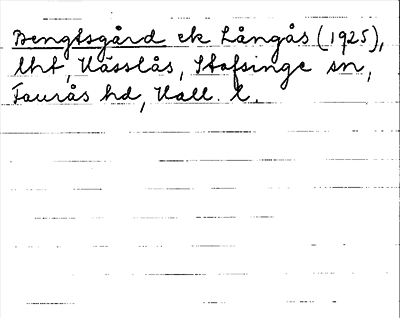 Bengtsgård ek Långås (1925),
lht, Kässlås, Stafsinge sn,
Faurås hd, Hall. l.